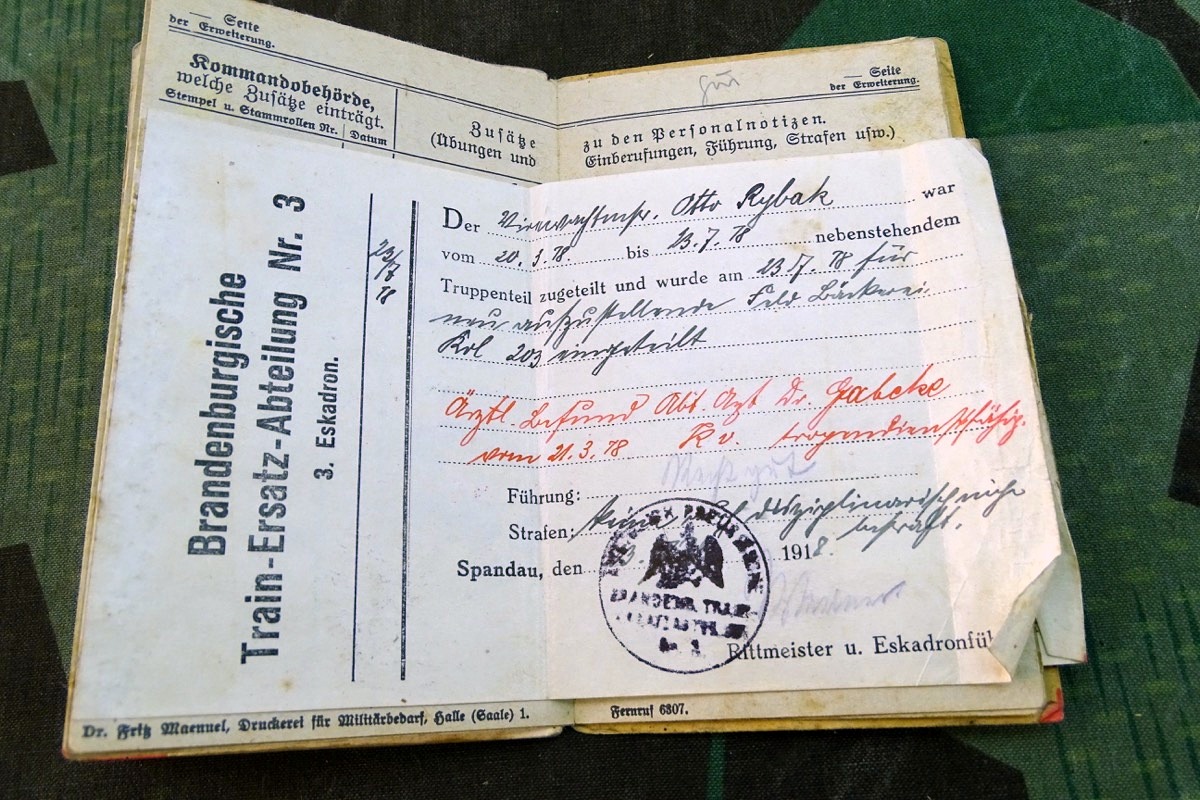 — Seite
der Erweiterung.
Kommandobehörde,
welche Zusätze einträgt.
Stempel u. Stammrollen Nr. | Datum
Zusätze
(Übungen und
gut
— Seite
der Erweiterung.
zu den Personalnotizen.
Einberufungen, Führung, Strafen usw.)
Brandenburgische
Train-Ersatz-Abteilung Nr. 3
3. Eskadron.
23/7
18
Der Otto Rybak war
vom 20.3.18 bis 23.7.18 nebenstehendem
Truppenteil zugeteilt und wurde am 23.7.18 für
neu aufzustellende Feld Bäckerei
Kol 203 eingeteilt
Ärztl. Befund Abt. Arzt Dr.
vom 21.3.18 Kv. tropendienstfähig.
Führung:
Strafen: keine disziplinarisch nicht
bestraft.
Spandau, den 1918.
BRANDENB. TRAIN-
Rittmeister u. Eskadronfü
Dr. Fritz Maennel, Druckerei für Militärbedarf, Halle (Saale) 1.
Fernruf 6307.